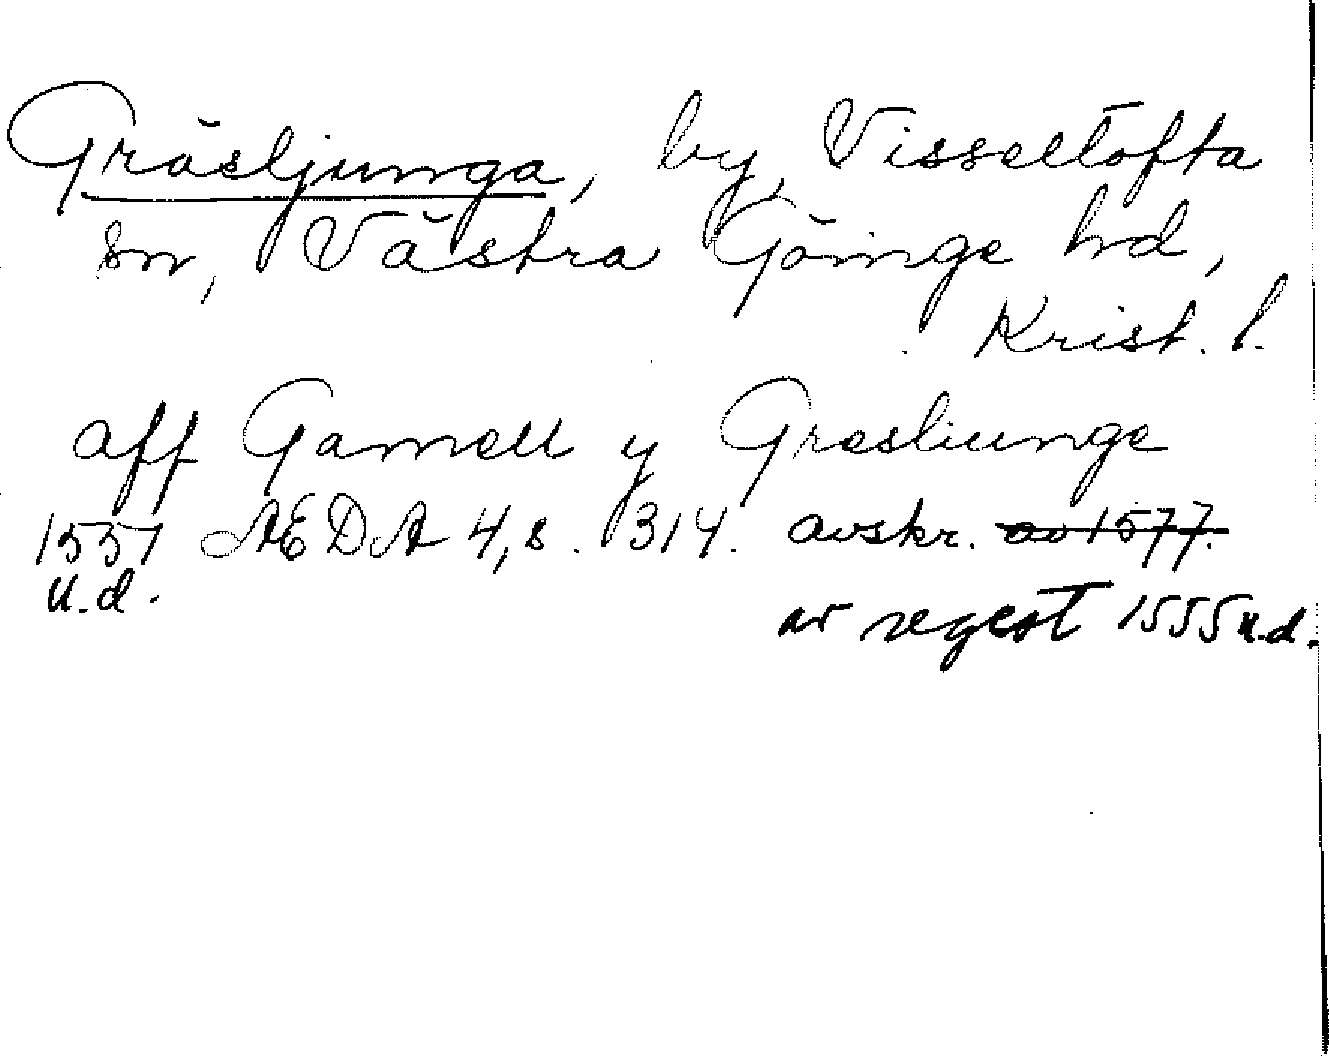 Gräsljunga, by, Visseltofta
sn, Västra Göinge hd,
Krist. l.
aff Gamell y Gresliunge
1557 AEDA 4, s. 314. avskr. av 1577.
u.d.
av regest 1555 u.d.